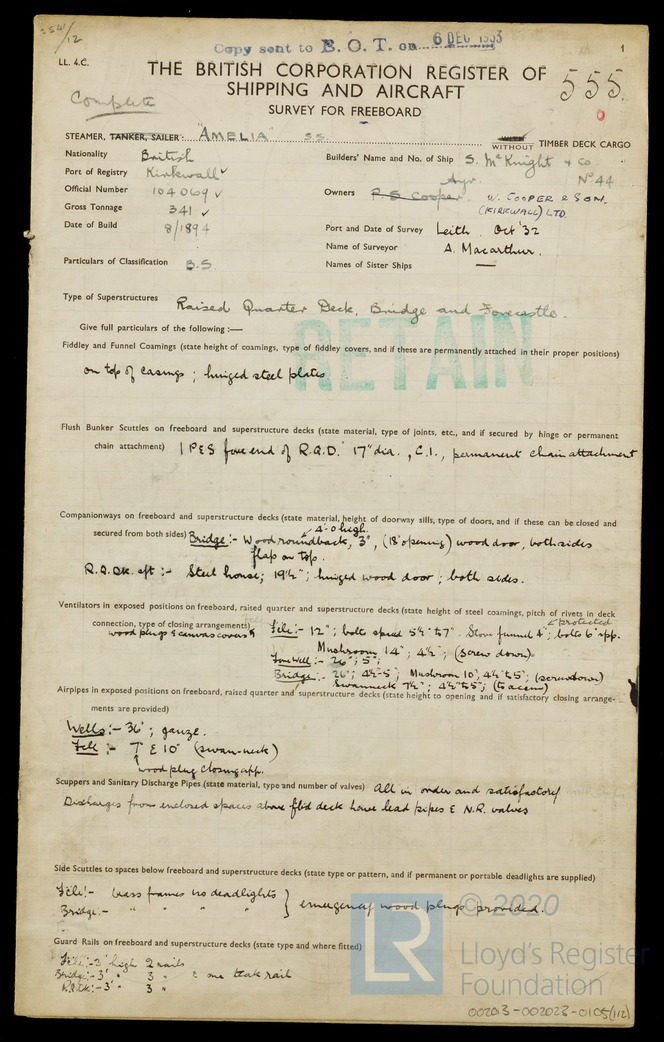 254/12
Copy sent to B.O.T. on 6 DEC 1933
1
LL. 4.C.
THE BRITISH CORPORATION REGISTER OF
SHIPPING AND AIRCRAFT
555
Complete
SURVEY FOR FREEBOARD
0
STEAMER, TANKER, SAILER: "AMELIA" S.S.
WITHOUT TIMBER DECK CARGO
Nationality British
Builders' Name and No. of Ship S. McKnight & Co
Port of Registry Kirkwall ✓
Ayr. No 44
Official Number 104069 ✓
Owners R.S Cooper W. COOPER & SON.
(KIRKWALL) LTD.
Gross Tonnage 341 ✓
Date of Build 8/1894
Port and Date of Survey Leith. Oct '32
Name of Surveyor A. Macarthur.
Particulars of Classification B.S
Names of Sister Ships —
Type of Superstructures Raised Quarter Deck, Bridge and Forecastle.
RETAIN
Give full particulars of the following :—
Fiddley and Funnel Coamings (state height of coamings, type of fiddley covers, and if these are permanently attached in their proper positions)
on top of casings ; hinged steel plates
Flush Bunker Scuttles on freeboard and superstructure decks (state material, type of joints, etc., and if secured by hinge or permanent
chain attachment) 1 P & S fore end of R.Q.D. 17" dia., C.I., permanent chain attachment
Companionways on freeboard and superstructure decks (state material, height of doorway sills, type of doors, and if these can be closed and
4'-0 high
secured from both sides) Bridge :- Wood roundback, 3", (18" opening) wood door, both sides
flap on top.
R.Q.Dk. aft :- Steel house; 19½"; hinged wood door; both sides.
Ventilators in exposed positions on freeboard, raised quarter and superstructure decks (state height of steel coamings, pitch of rivets in deck
protected
connection, type of closing arrangements) Fcle :- 12"; bolts spaced 5½" to 7". Stove funnel 4"; bolts 6" spp.
wood plugs & canvas covers
Mushroom 14"; 4½"; (screw down)
Fore Well :- 26"; 5";
Bridge :- 26"; 4½-5"; Mushroom 10", 4½" to 5"; (screwdown)
Swanneck 7½"; 4½" to 5";
Airpipes in exposed positions on freeboard, raised quarter and superstructure decks (state height to opening and if satisfactory closing arrange-
ments are provided)
Wells :- 36"; gauze.
Fcle :- 7" & 10" (swan-neck)
wood plug closing app.
Scuppers and Sanitary Discharge Pipes (state material, type and number of valves) All in order and satisfactory
Discharges from enclosed spaces above fbd deck have lead pipes & N.R. valves
Side Scuttles to spaces below freeboard and superstructure decks (state type or pattern, and if permanent or portable deadlights are supplied)
Fcle :- brass frames no deadlights
Bridge :- " " " " } emergency wood plugs provided.
Guard Rails on freeboard and superstructure decks (state type and where fitted)
Fcle :- 2' high 2 rails
Bridge :- 3' " 3 " & one teak rail
R.Q.Dk :- 3' " 3 "
LR
© 2020
Lloyd's Register
Foundation
002013-002023-0105(1/2)